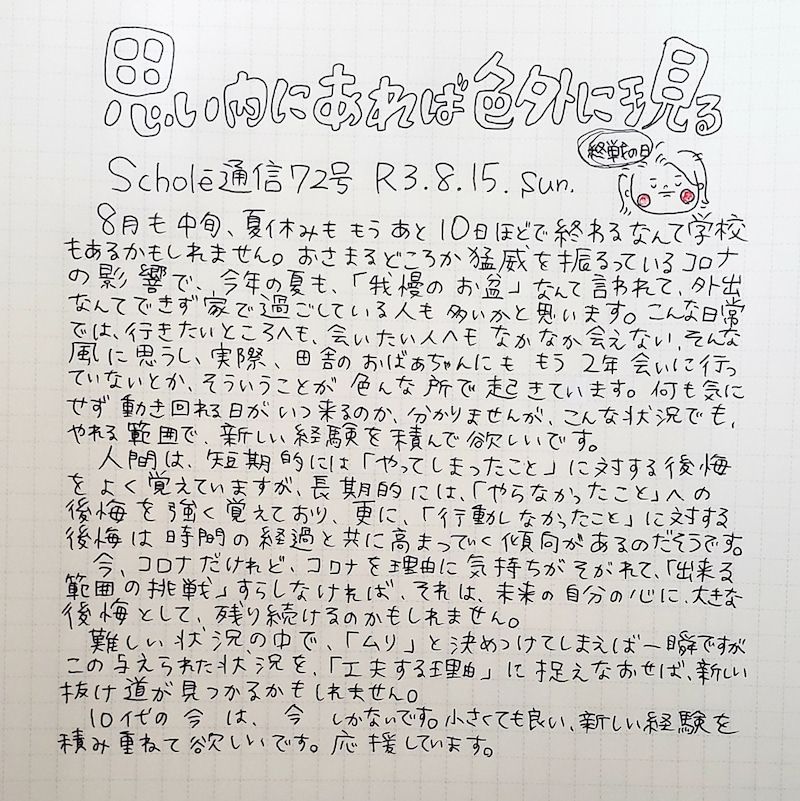 思い内にあれば色外に現る
終戦の日
Scholē通信72号 R3.8.15. sun.
8月も中旬、夏休みももうあと10日ほどで終わるなんて学校
もあるかもしれません。おさまるどころか猛威を振るっているコロナ
の影響で、今年の夏も、「我慢のお盆」なんて言われて、外出
なんてできず家で過ごしている人も多いかと思います。こんな日常
では、行きたいところへも、会いたい人へもなかなか会えない、そんな
風に思うし、実際、田舎のおばぁちゃんにももう2年会いに行っ
ていないとか、そういうことが色んな所で起きています。何も気に
せず動き回れる日がいつ来るのか、分かりませんが、こんな状況でも、
やれる範囲で、新しい経験を積んで欲しいです。
人間は、短期的には「やってしまったこと」に対する後悔
をよく覚えていますが、長期的には、「やらなかったこと」への
後悔を強く覚えており、更に、「行動しなかったこと」に対する
後悔は時間の経過と共に高まっていく傾向があるのだそうです。
今、コロナだけれど、コロナを理由に気持ちがそがれて、「出来る
範囲の挑戦」すらしなければ、それは、未来の自分の心に、大きな
後悔として、残り続けるのかもしれません。
難しい状況の中で、「ムリ」と決めつけてしまえば一瞬ですが
この与えられた状況を、「工夫する理由」に捉えなおせば、新しい
抜け道が見つかるかもしれません。
10代の今は、今しかないです。小さくても良い、新しい経験を
積み重ねて欲しいです。応援しています。